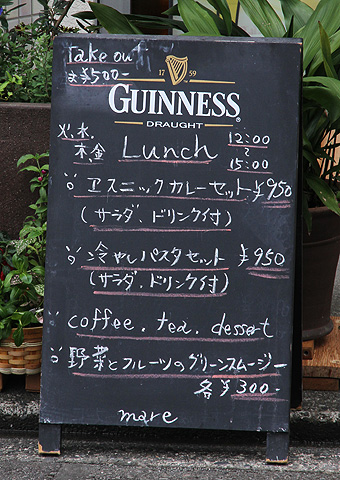 Take out
は¥500-
17 59
GUINNESS
DRAUGHT
火.水.
木.金
Lunch
12:00
~
15:00
エスニックカレーセット ¥950
(サラダ、ドリンク付)
冷やしパスタセット ¥950
(サラダ、ドリンク付)
coffee. tea. dessert
野菜とフルーツのグリーンスムージー
各¥300-
mare